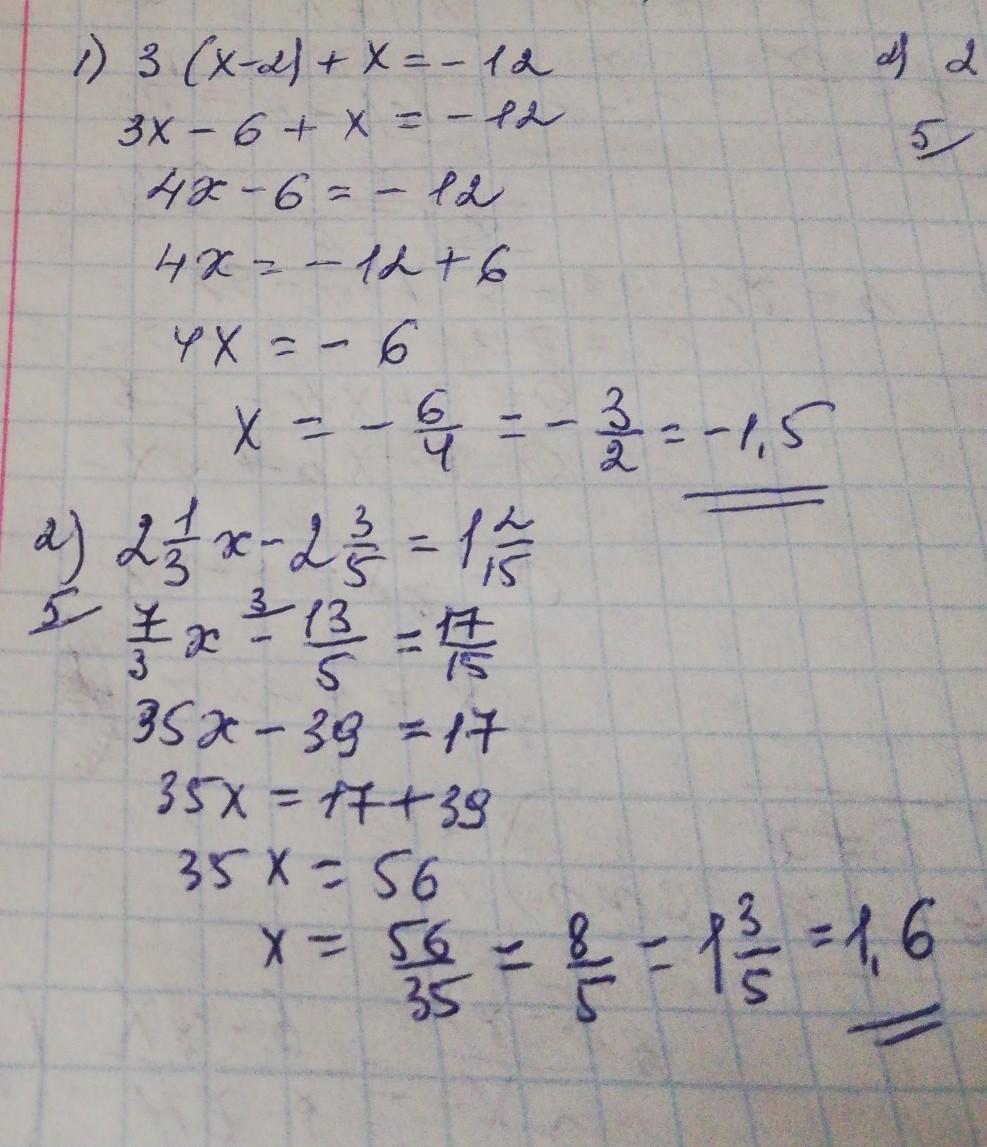 1) 3 (x-2) + x = - 12
3x - 6 + x = - 12
4x - 6 = - 12
4x = - 12 + 6
4x = - 6
x = - 6/4 = - 3/2 = -1,5
2) 2 1/3 x - 2 3/5 = 1 2/15
5/ 7/3 x - 3/ 13/5 = 17/15
35x - 39 = 17
35x = 17 + 39
35x = 56
x = 56/35 = 8/5 = 1 3/5 = 1,6
2) 2
5/